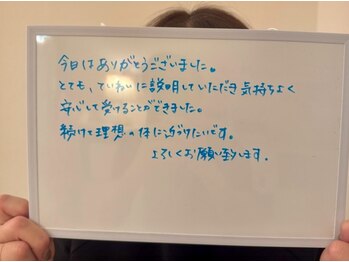 今日はありがとうございました。
とても、ていねいに説明していただき気持ちよく
安心して受けることができました。
続けて理想の体に近づけたいです。
よろしくお願い致します。